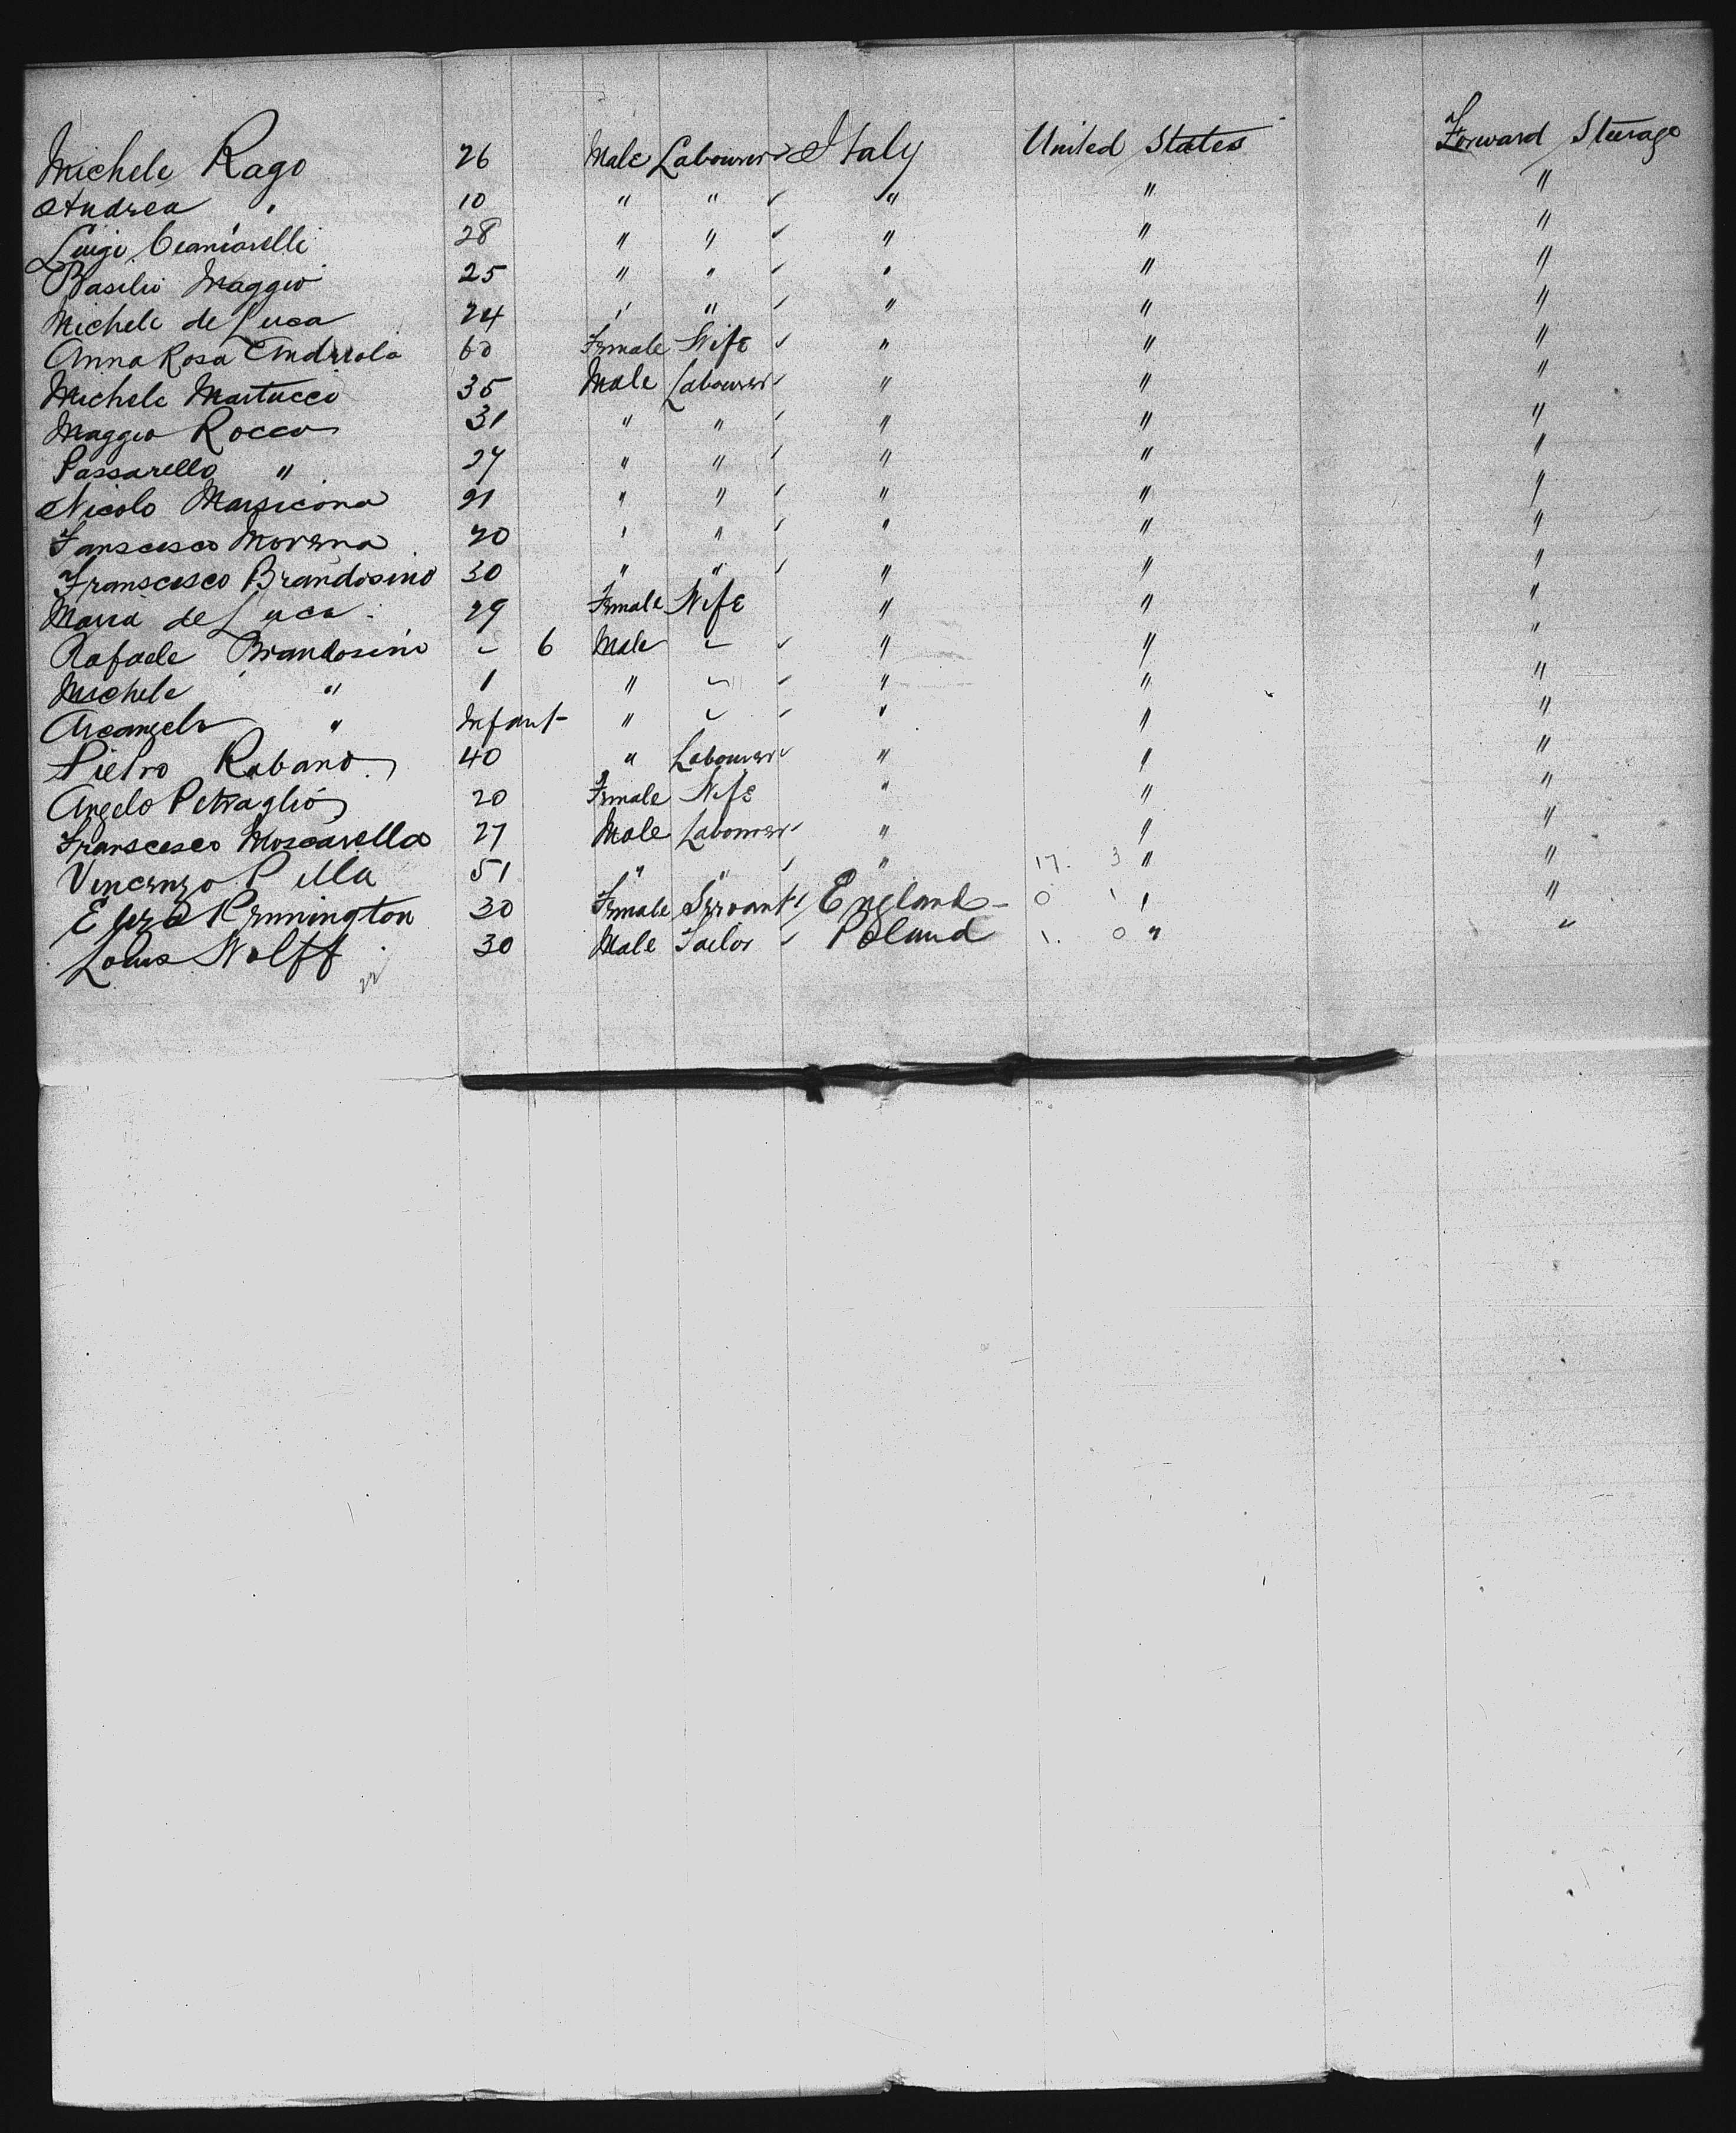 Michele Rago 26 Male Labourer Italy United States Forward Steerage
Andrea " 10 " " " " "
Luigi Cianciarelli 28 " " " " "
Basilio Maggio 25 " " " " "
Michele de Luca 24 " " " " "
Anna Rosa Andriola 60 Female Wife " " "
Michele Martucci 35 Male Labourer " " "
Maggio Rocco 31 " " " " "
Passarello " 27 " " " " "
Nicolo Marsicona 21 " " " " "
Fanscesco Morena 20 " " " " "
Franscesco Brandosino 30 " " " " "
Maria de Luca 29 Female Wife " " "
Rafaele Brandosini - 6 Male - " " "
Michele " 1 " - " " "
Arcangelo " Infant " - " " "
Pietro Rabano 40 " Labourer " " "
Angelo Petraglio 20 Female Wife " " "
Franscesco Moscarella 27 Male Labourer " " "
Vincenzo Pella 51 " " " 17. 3 " "
Eliza Pennington 30 Female Servant England - 0 1 " "
Louis Wolff 30 Male Tailor Poland 1. 0 " "
22